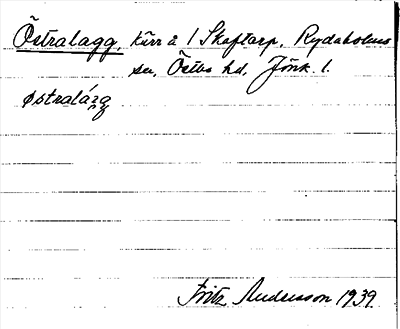 Östralagg, kärr å 1 Skaftarp, Rydaholms
sn, Östbo hd, Jönk. l.
östralágg
Fritz Andersson 1939.